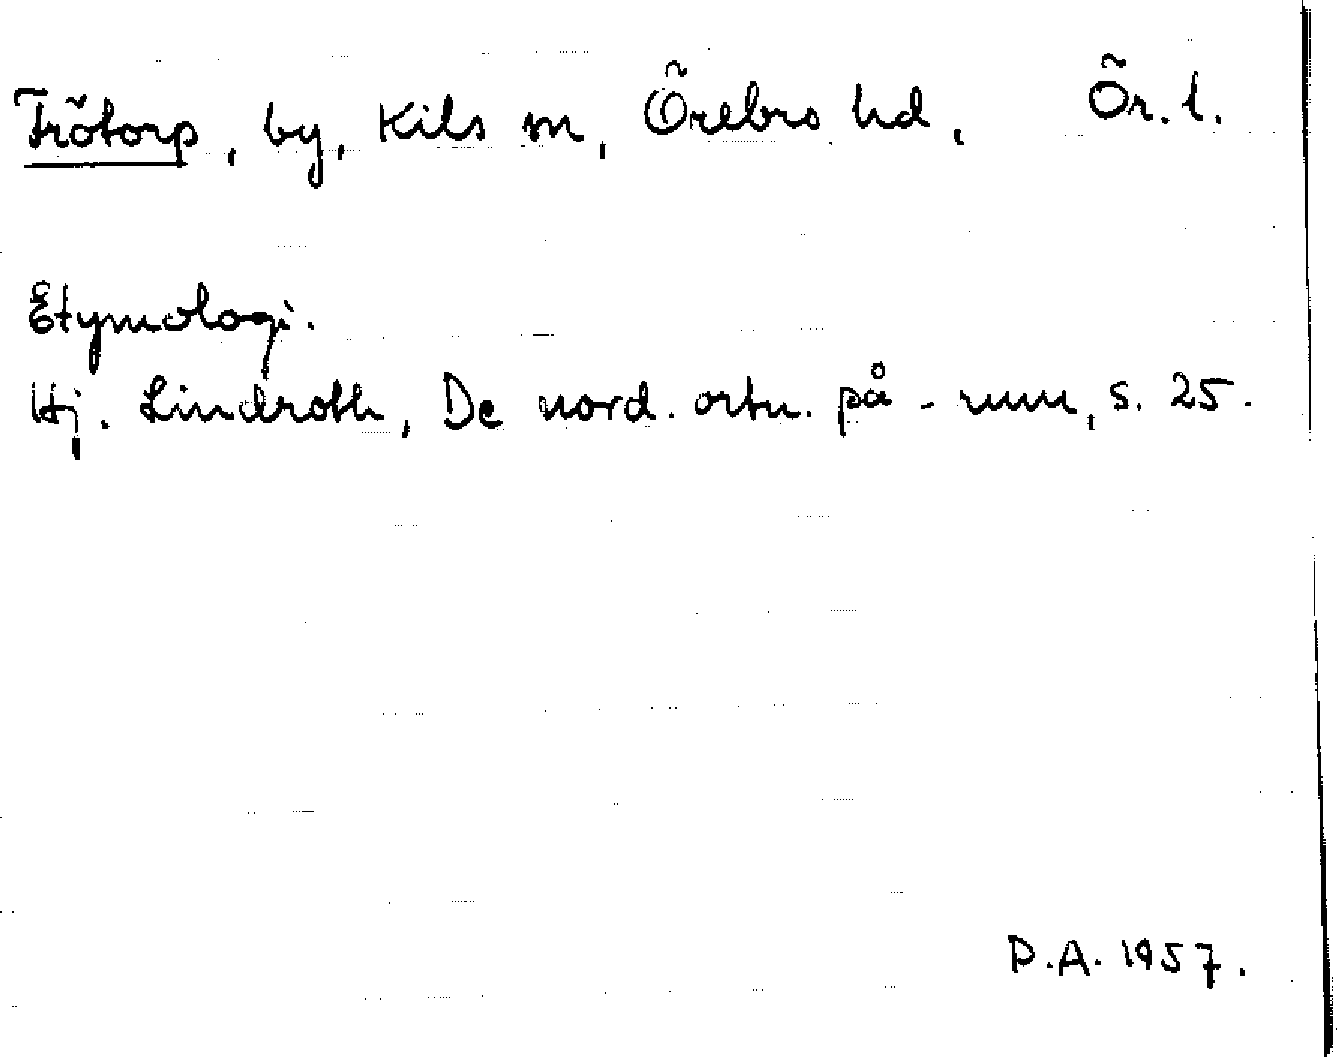 Trötorp, by, Kils sn, Örebro hd. Ör. l.
Etymologi.
Hj. Lindroth, De nord. ortn. på -unn, s. 25.
D.A. 1957.